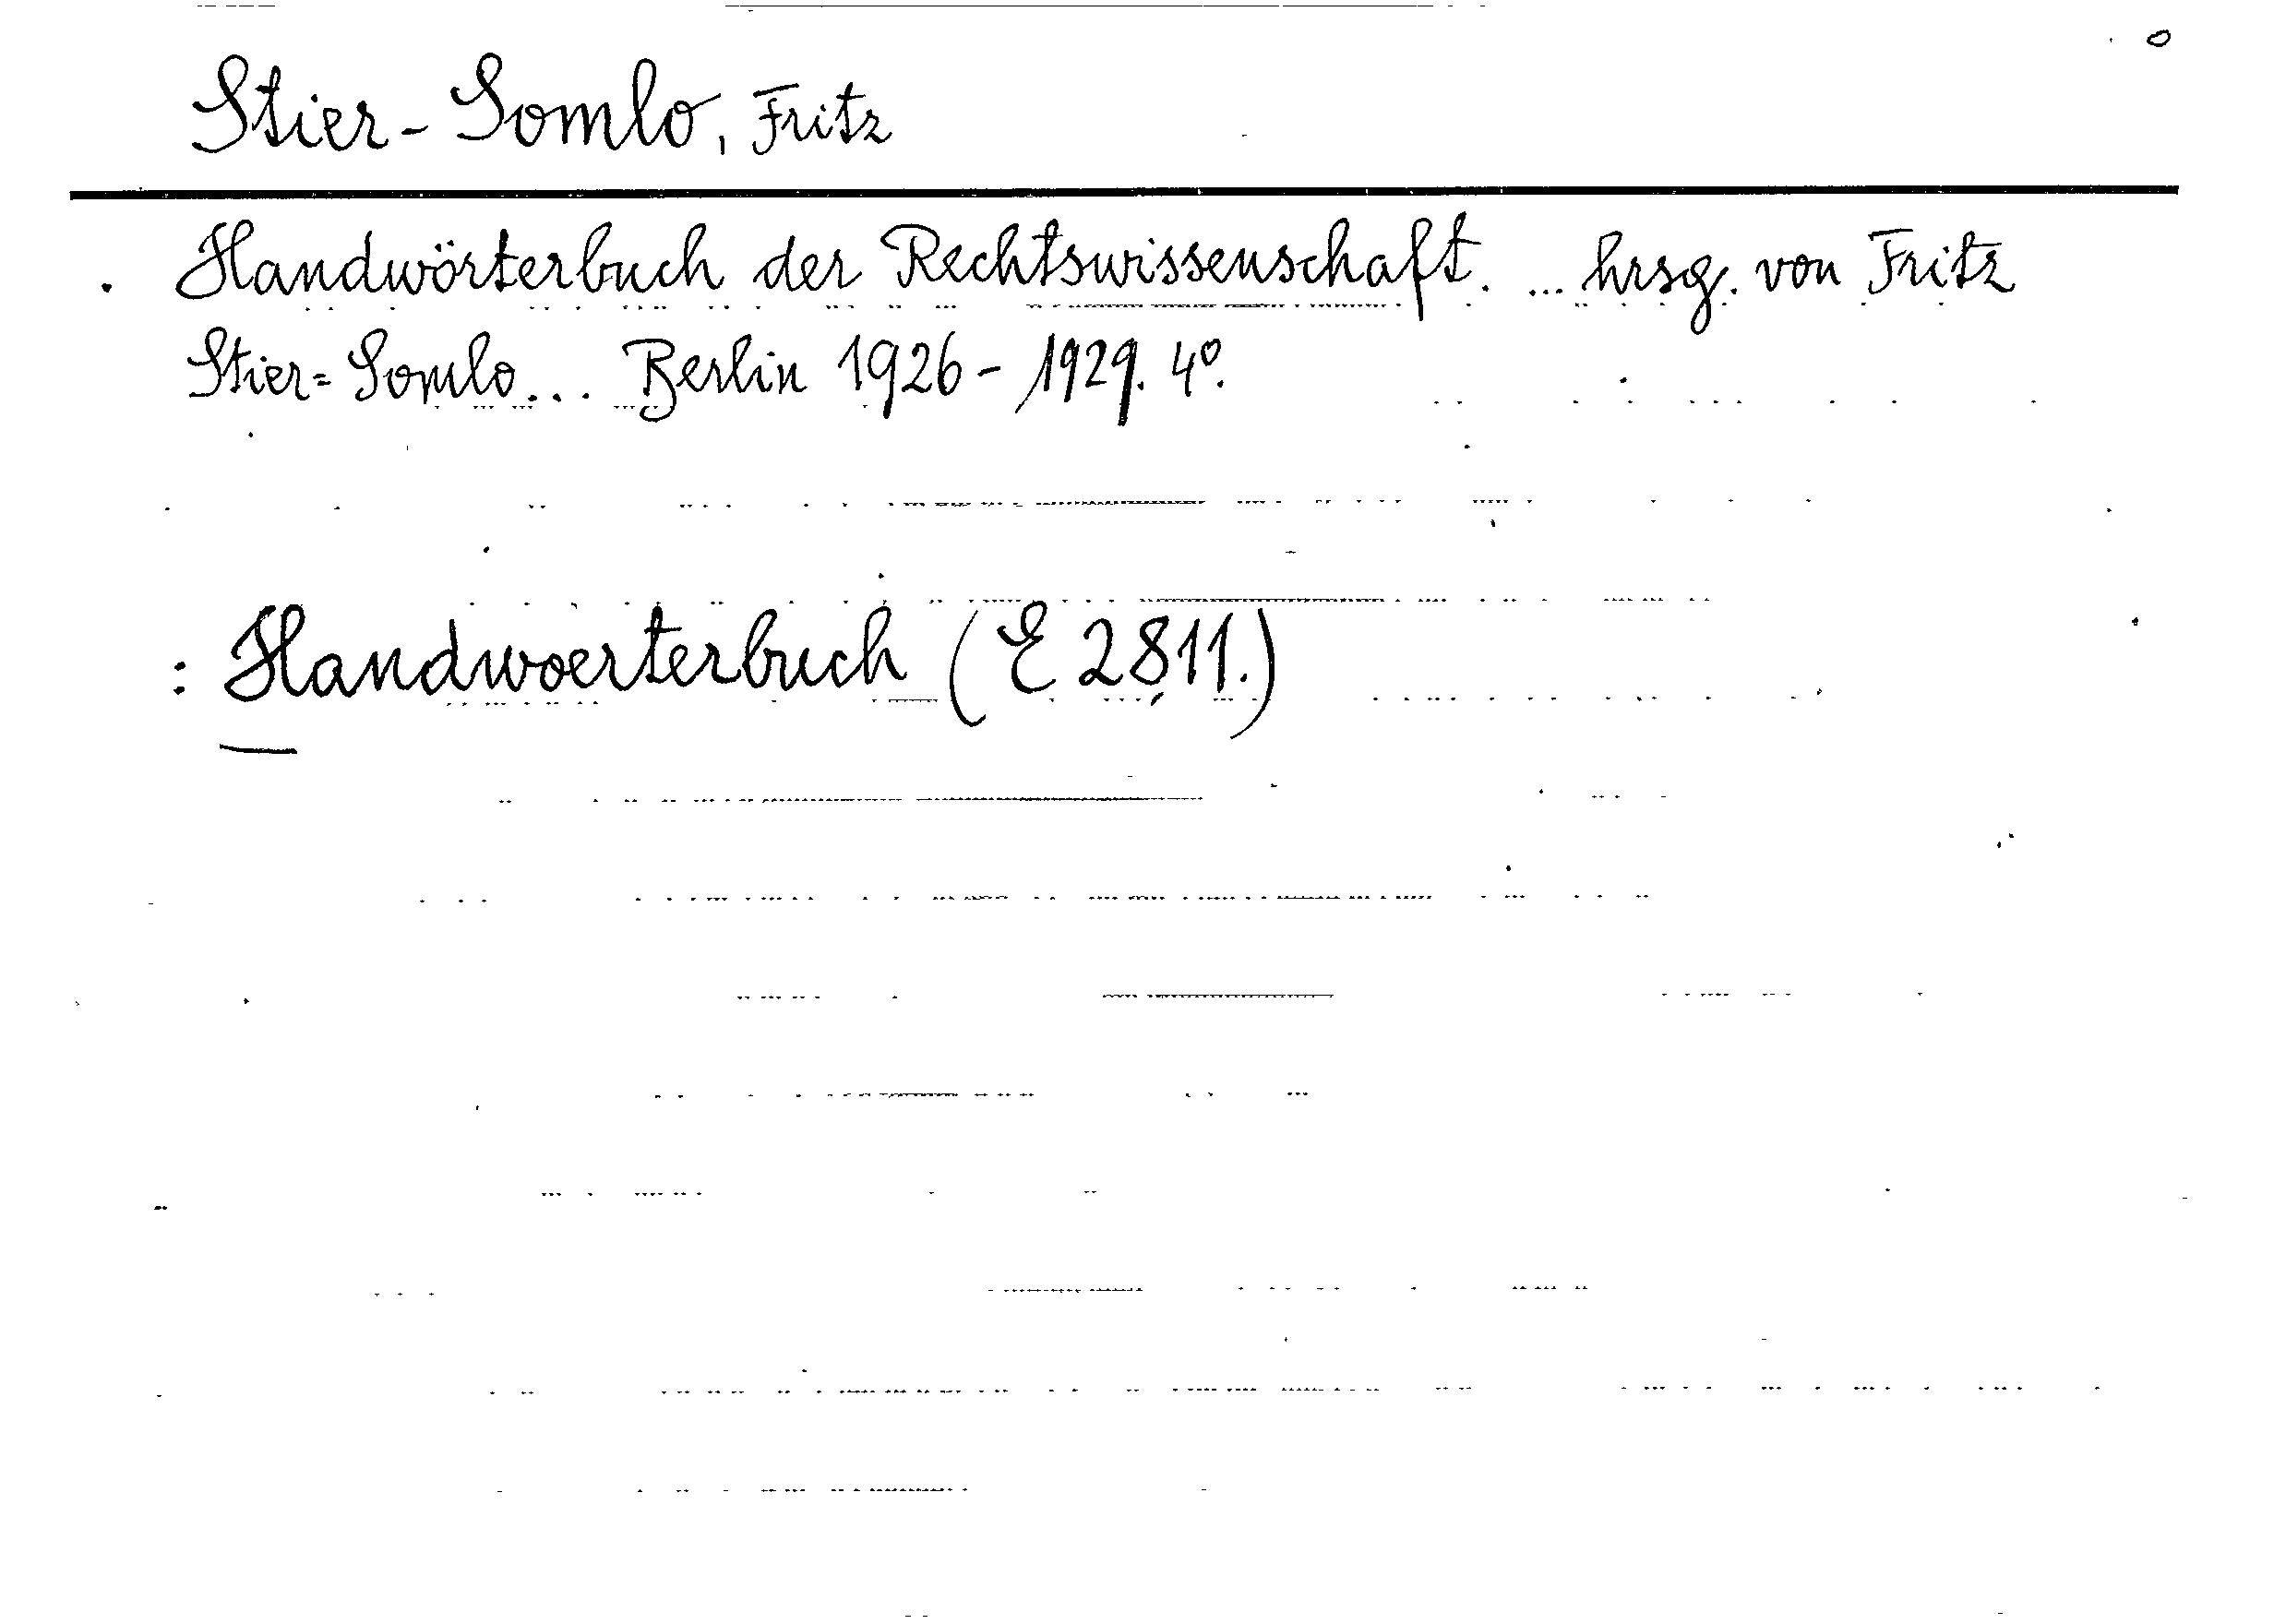 Stier-Somlo, Fritz
Handwörterbuch der Rechtswissenschaft. ... hrsg. von Fritz
Stier=Somlo... Berlin 1926-1929. 4º.
: Handwoerterbuch (E 2811.)